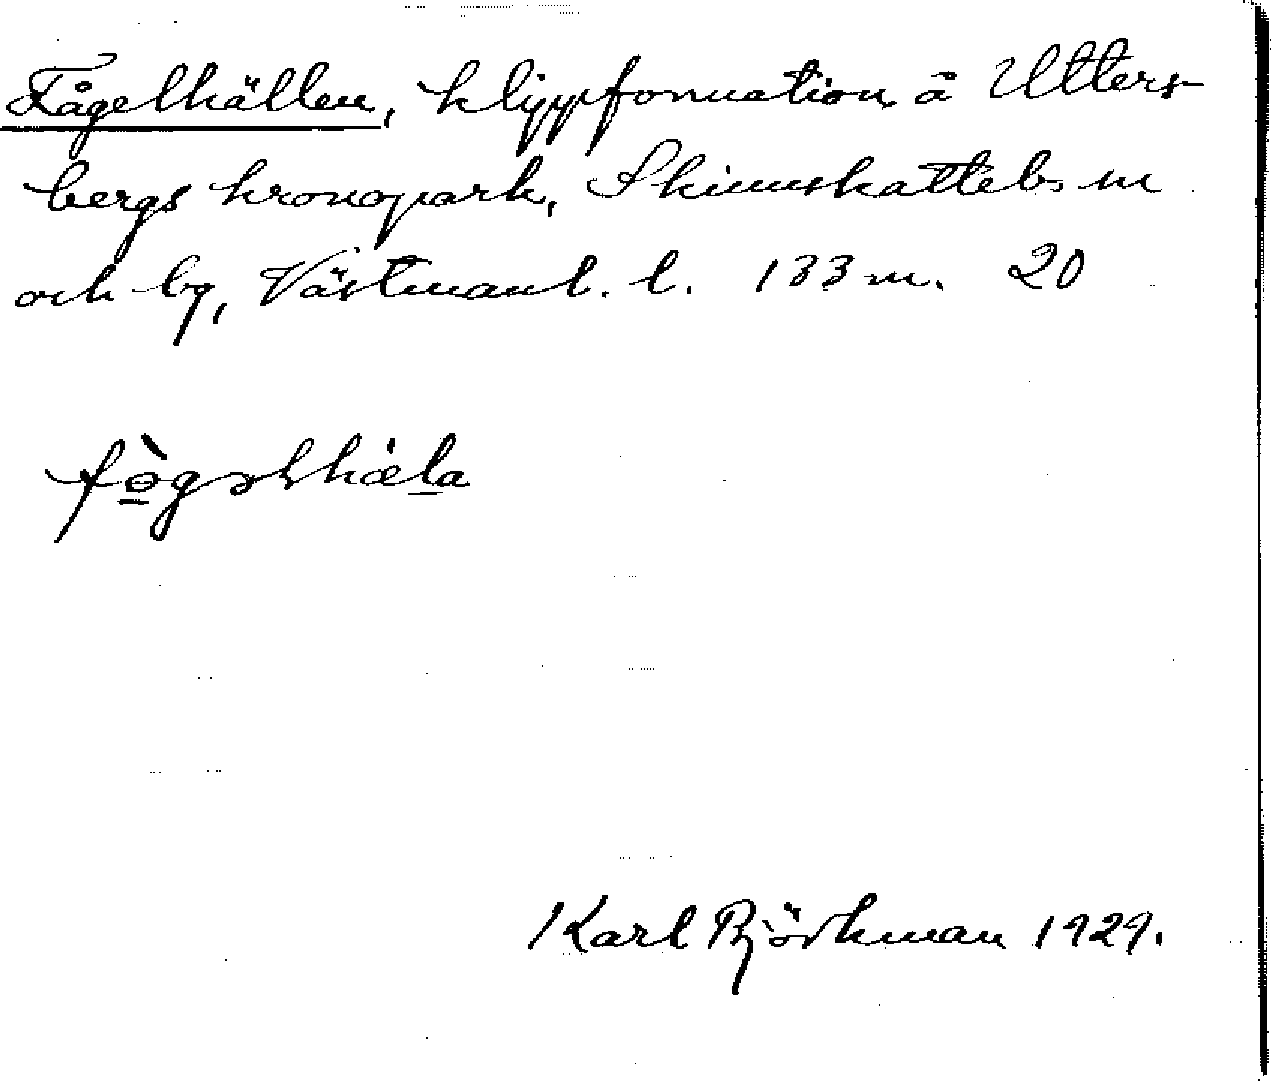 Fågelhällen, klippformation å Utters-
bergs kronopark, Skinnskattebs sn
och by, Västmanl. l. 133 m. 20
fògəlhæla
Karl Björkman 1929.